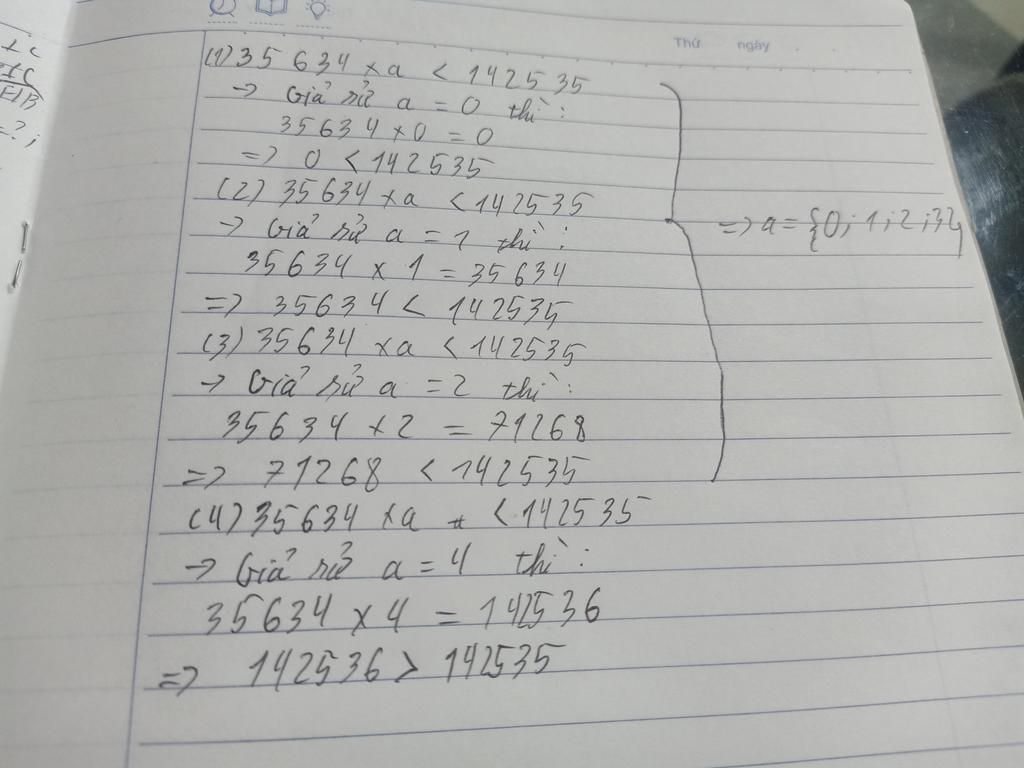 Thứ ngày
(1) 35 634 x a < 142535
→ Giả sử a = 0 thì:
35634 x 0 = 0
=> 0 < 142535
(2) 35634 x a < 142535
→ Giả sử a = 1 thì:
35634 x 1 = 35634
=> 35634 < 142535
=> a = {0; 1; 2; 3}
(3) 35634 x a < 142535
→ Giả sử a = 2 thì:
35634 x 2 = 71268
=> 71268 < 142535
(4) 35634 x a < 142535
→ Giả sử a = 4 thì:
35634 x 4 = 142536
=> 142536 > 142535